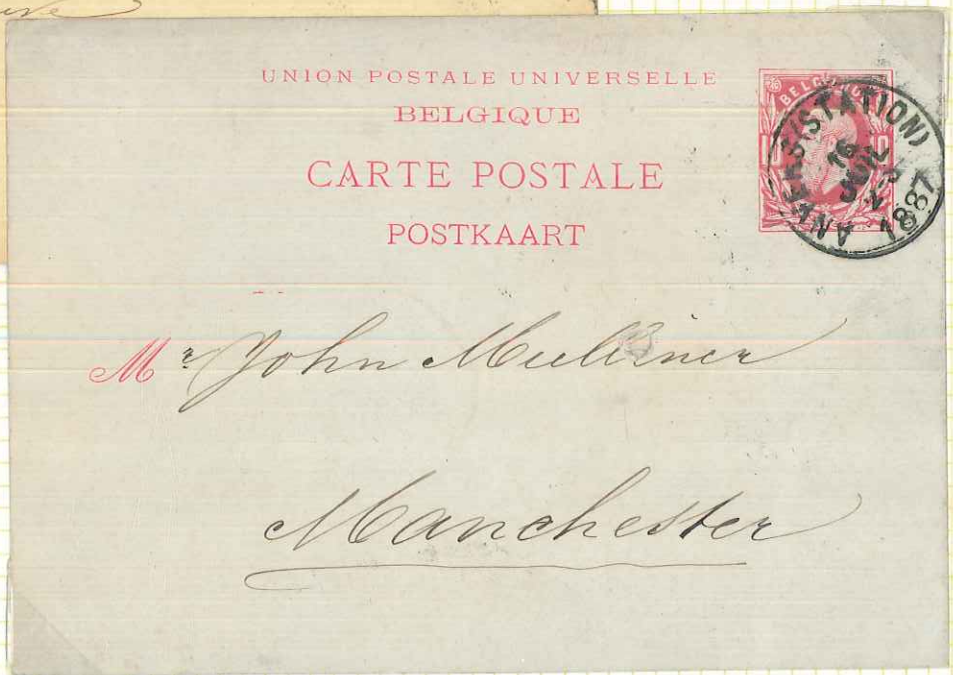 UNION POSTALE UNIVERSELLE
BELGIQUE
CARTE POSTALE
POSTKAART
BELGIQUE
10 10
ANVERS (STATION)
16
1887
Mr John Mulliner
Manchester